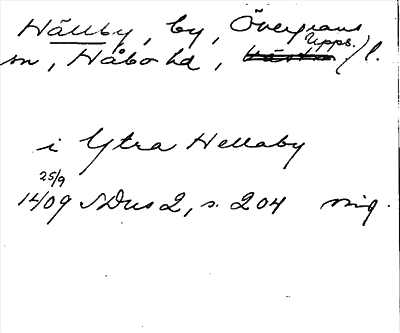 Hällby, by, Övergrans
sn, Håbo hd, Upps. l.
i Ytra Hellaby
25/9
1409 SDns 2, s. 204 orig.